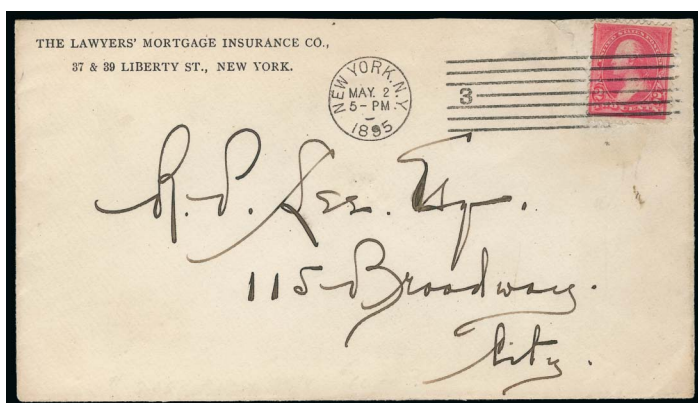 THE LAWYERS' MORTGAGE INSURANCE CO.,
37 & 39 LIBERTY ST., NEW YORK.
NEW YORK, N.Y.
MAY. 2
5-PM
1895
3
R. S. See. Esq.
115 Broadway.
City.